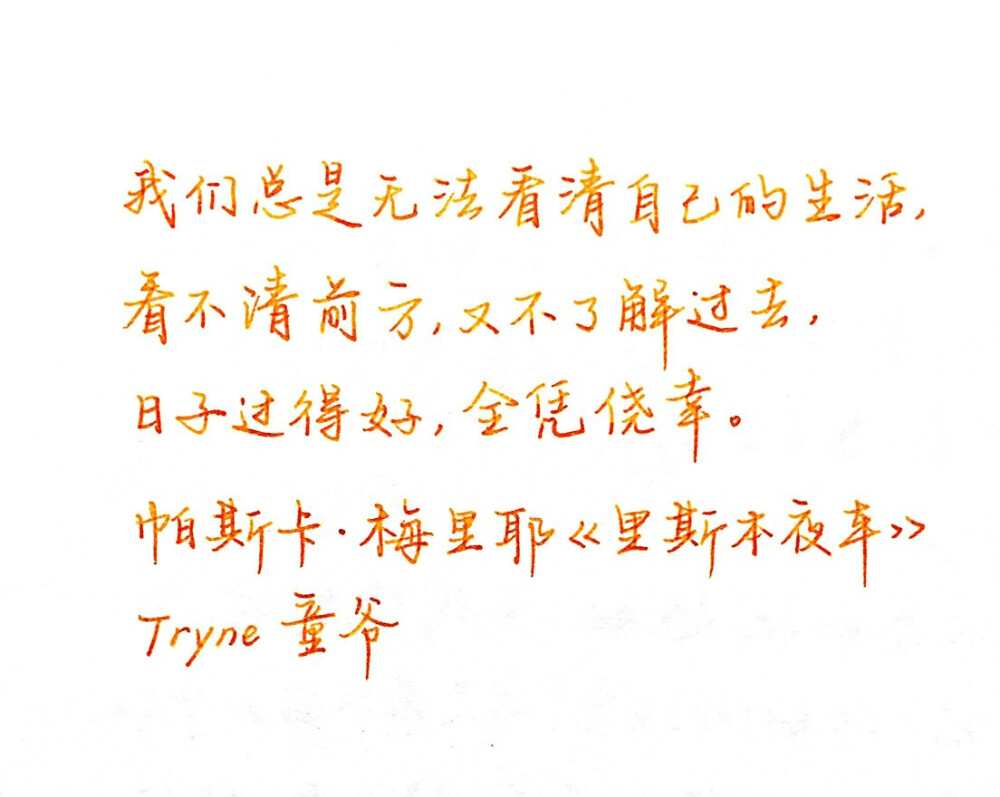 我们总是无法看清自己的生活,
看不清前方,又不了解过去,
日子过得好,全凭侥幸。
帕斯卡·梅里耶《里斯本夜车》
Tryne 童爷